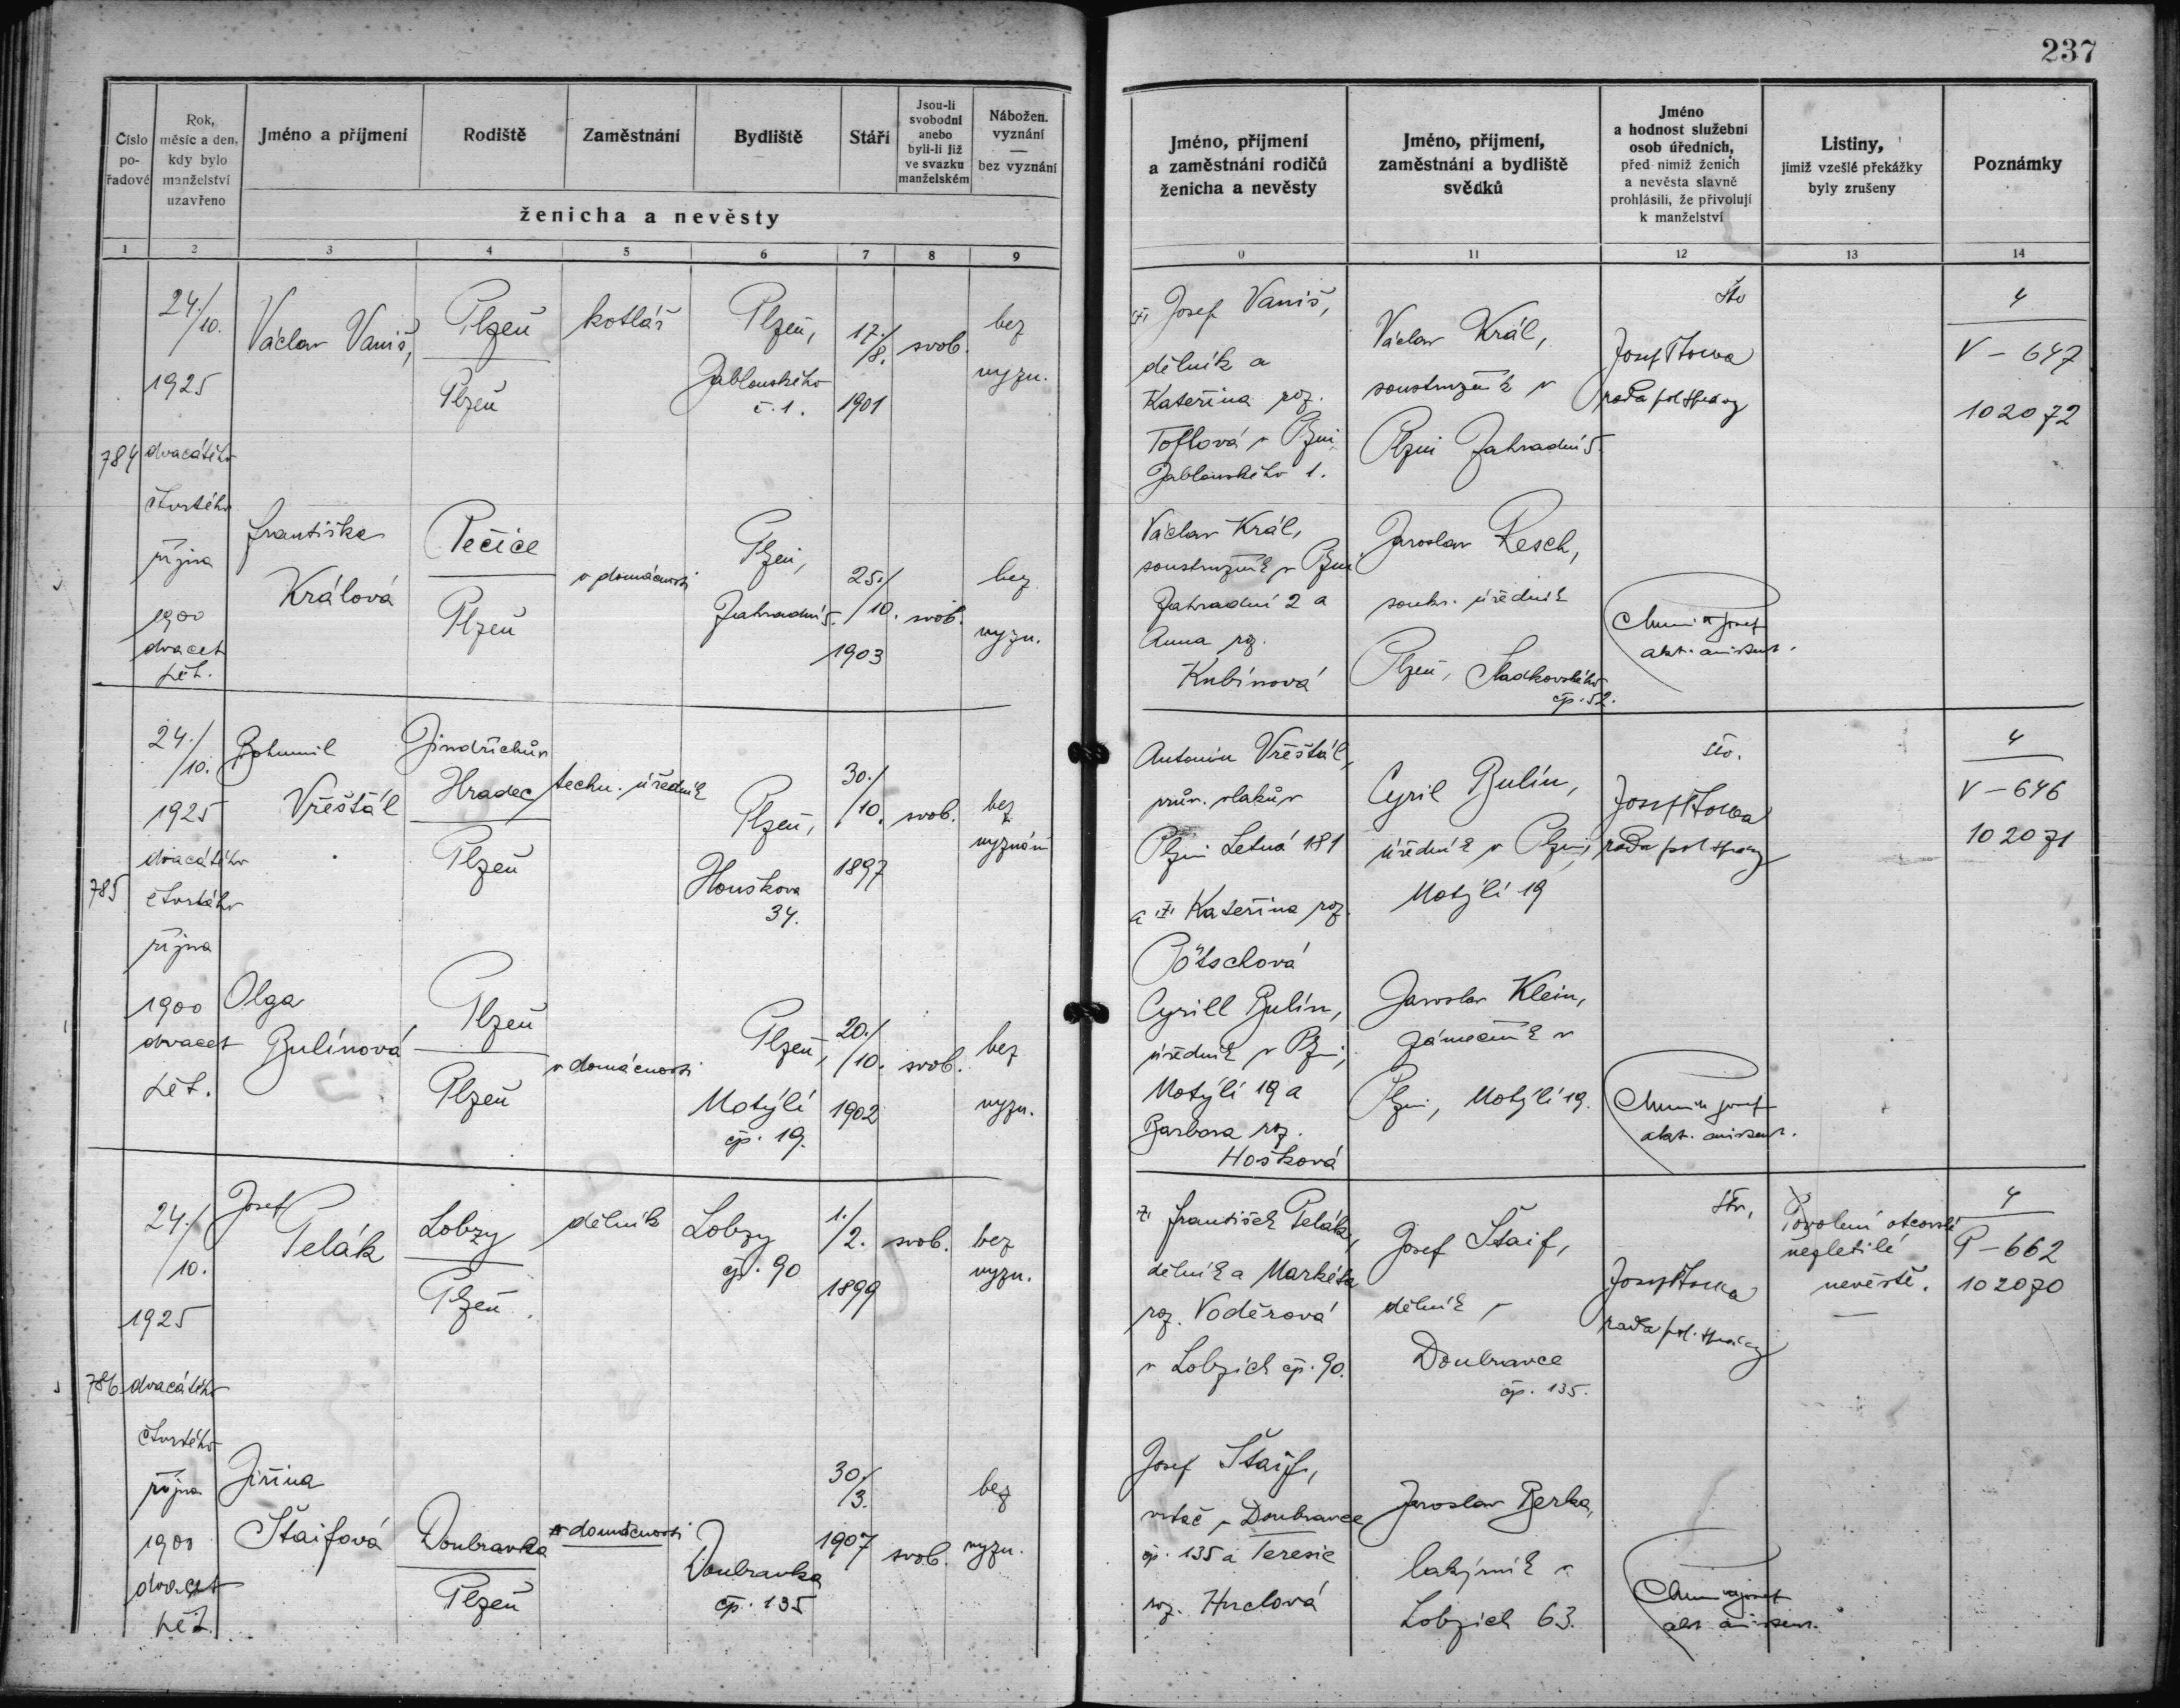 237
Číslo pořadové
Rok, měsíc a den, kdy bylo manželství uzavřeno
Jméno a příjmení
Rodiště
Zaměstnání
Bydliště
Stáří
Jsou-li svobodni anebo byli-li již ve svazku manželském
Nábožen. vyznání — bez vyznání
ženicha a nevěsty
Jméno, příjmení a zaměstnání rodičů ženicha a nevěsty
Jméno, příjmení, zaměstnání a bydliště svědků
Jméno a hodnost služební osob úředních, před nimiž ženich a nevěsta slavně prohlásili, že přivolují k manželství
Listiny, jimiž vzešlé překážky byly zrušeny
Poznámky
1 2 3 4 5 6 7 8 9 0 11 12 13 14
784
24./10.
1925
dvacátého
čtvrtého
října
1900
dvacet
pět.
Václav Vaniš,
Plzeň
Plzeň
kotlář
Plzeň,
Jablonského
č. 1.
17./8.
1901
svob.
bez
vyzn.
Josef Vaniš,
dělník a
Kateřina roz.
Toflová v Plzni
Jablonského 1.
Václav Král,
soustružník v
Plzni Zahradní 5.
Josef
rada pol. správy
4
V - 647
102072
Františka
Králová
Pečice
Plzeň
v domácnosti
Plzeň,
Zahradní 5.
25./10.
1903
svob.
bez
vyzn.
Václav Král,
soustružník v Plzni
Zahradní 2 a
Anna roz.
Kubínová
Jaroslav Resch,
soukr. úředník
Plzeň, Sladkovského
čp. 52.
Josef
785
24./10.
1925
dvacátého
čtvrtého
října
1900
dvacet
pět.
Bohumil
Vřešťál
Jindřichův
Hradec
Plzeň
techn. úředník
Plzeň,
Houškova
34.
30./10.
1897
svob.
bez
vyznání
Antonín Vřešťál,
prův. vlaků v
Plzni Letná 181
a Kateřina roz.
Pötschová
Cyril Bulín,
úředník v Plzni,
Motýlí 19
Josef
rada pol. správy
4
V - 646
102071
Olga
Bulínová
Plzeň
Plzeň
v domácnosti
Plzeň,
Motýlí
čp. 19.
20./10.
1902
svob.
bez
vyzn.
Cyrill Bulín,
úředník v Plzni,
Motýlí 19 a
Barbora roz.
Hošková
Jaroslav Klein,
zámečník v
Plzni, Motýlí 19.
Josef
786
24./10.
1925
dvacátého
čtvrtého
října
1900
dvacet
pět.
Josef
Pelák
Lobzy
Plzeň
dělník
Lobzy
čp. 90
1./2.
1899
svob.
bez
vyzn.
František Pelák,
dělník a Markéta
roz. Voděrová
v Lobzích čp. 90.
Josef Štaif,
dělník v
Doubravce
čp. 135.
Josef
rada pol. správy
Povolení otcovské
nezletilé
nevěstě.
4
P - 662
102070
Jiřina
Štaifová
Doubravka
Plzeň
v domácnosti
Doubravka
čp. 135
30./3.
1907
svob.
bez
vyzn.
Josef Štaif,
vrtač v Doubravce
čp. 135 a Teresie
roz. Huclová
Jaroslav Berka,
lakýrník v
Lobzích 63.